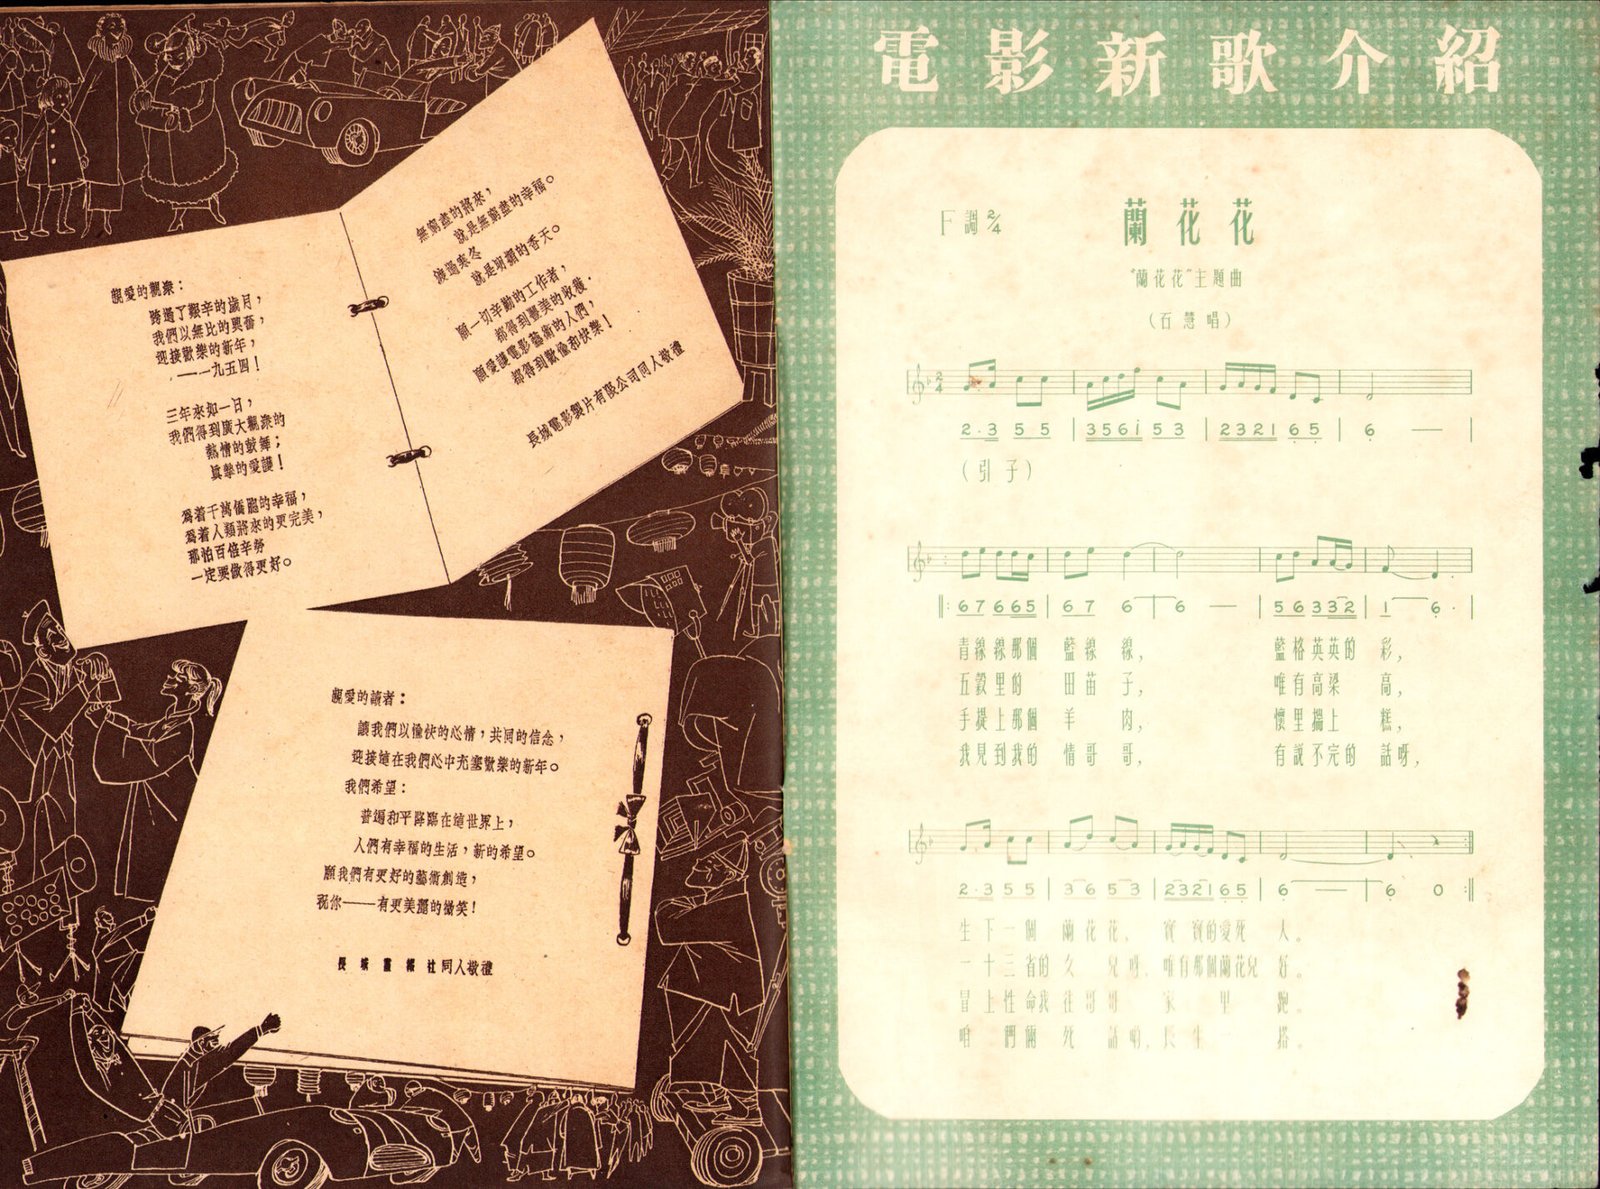 親愛的觀衆：
跨過了艱辛的歲月，
我們以無比的興奮，
迎接歡樂的新年，
——一九五四！
三年來如一日，
我們得到廣大觀衆的
熱情的鼓舞；
眞摯的愛護！
爲着千萬僑胞的幸福，
爲着人類將來的更完美，
那怕百倍辛勞
一定要做得更好。
無窮盡的將來，
就是無窮盡的幸福。
渡過寒冬
就是明媚的香天。
願一切辛勤的工作者，
都得到豐美的收穫．
願愛護電影藝術的人們，
都得到歡愉和快樂！
長城電影製片有限公司同人敬禮
親愛的讀者：
讓我們以愉快的心情，共同的信念，
迎接這在我們心中充塞歡樂的新年。
我們希望：
普遍和平降臨在這世界上，
人們有幸福的生活，新的希望。
願我們有更好的藝術創造，
祝你——有更美麗的微笑！
長城畫報社同人敬禮
電影新歌介紹
F調 2/4
蘭花花
“蘭花花”主題曲
（石慧唱）
2·3 5 5 | 3561̇ 5 3 | 2321 6̣5̣ | 6̣ — |
（引子）
‖: 6 7 6 6 5 | 6 7 6 | 6 — | 5 6 3 3 2 | 1 6̣ · |
青線線那個 藍線線， 藍格英英的彩，
五穀里的 田苗子， 唯有高梁高，
手提上那個 羊肉， 懷里揣上糕，
我見到我的 情哥哥， 有説不完的話呀，
2·3 5 5 | 3 6 5 3 | 2321 6̣5̣ | 6̣ — | 6̣ 0 :‖
生下一個 蘭花花， 實實的愛死人。
一十三省的女兒呀，唯有那個蘭花兒好。
冒上性命我往哥哥家里跑。
咱們倆死話喲，長生搭。